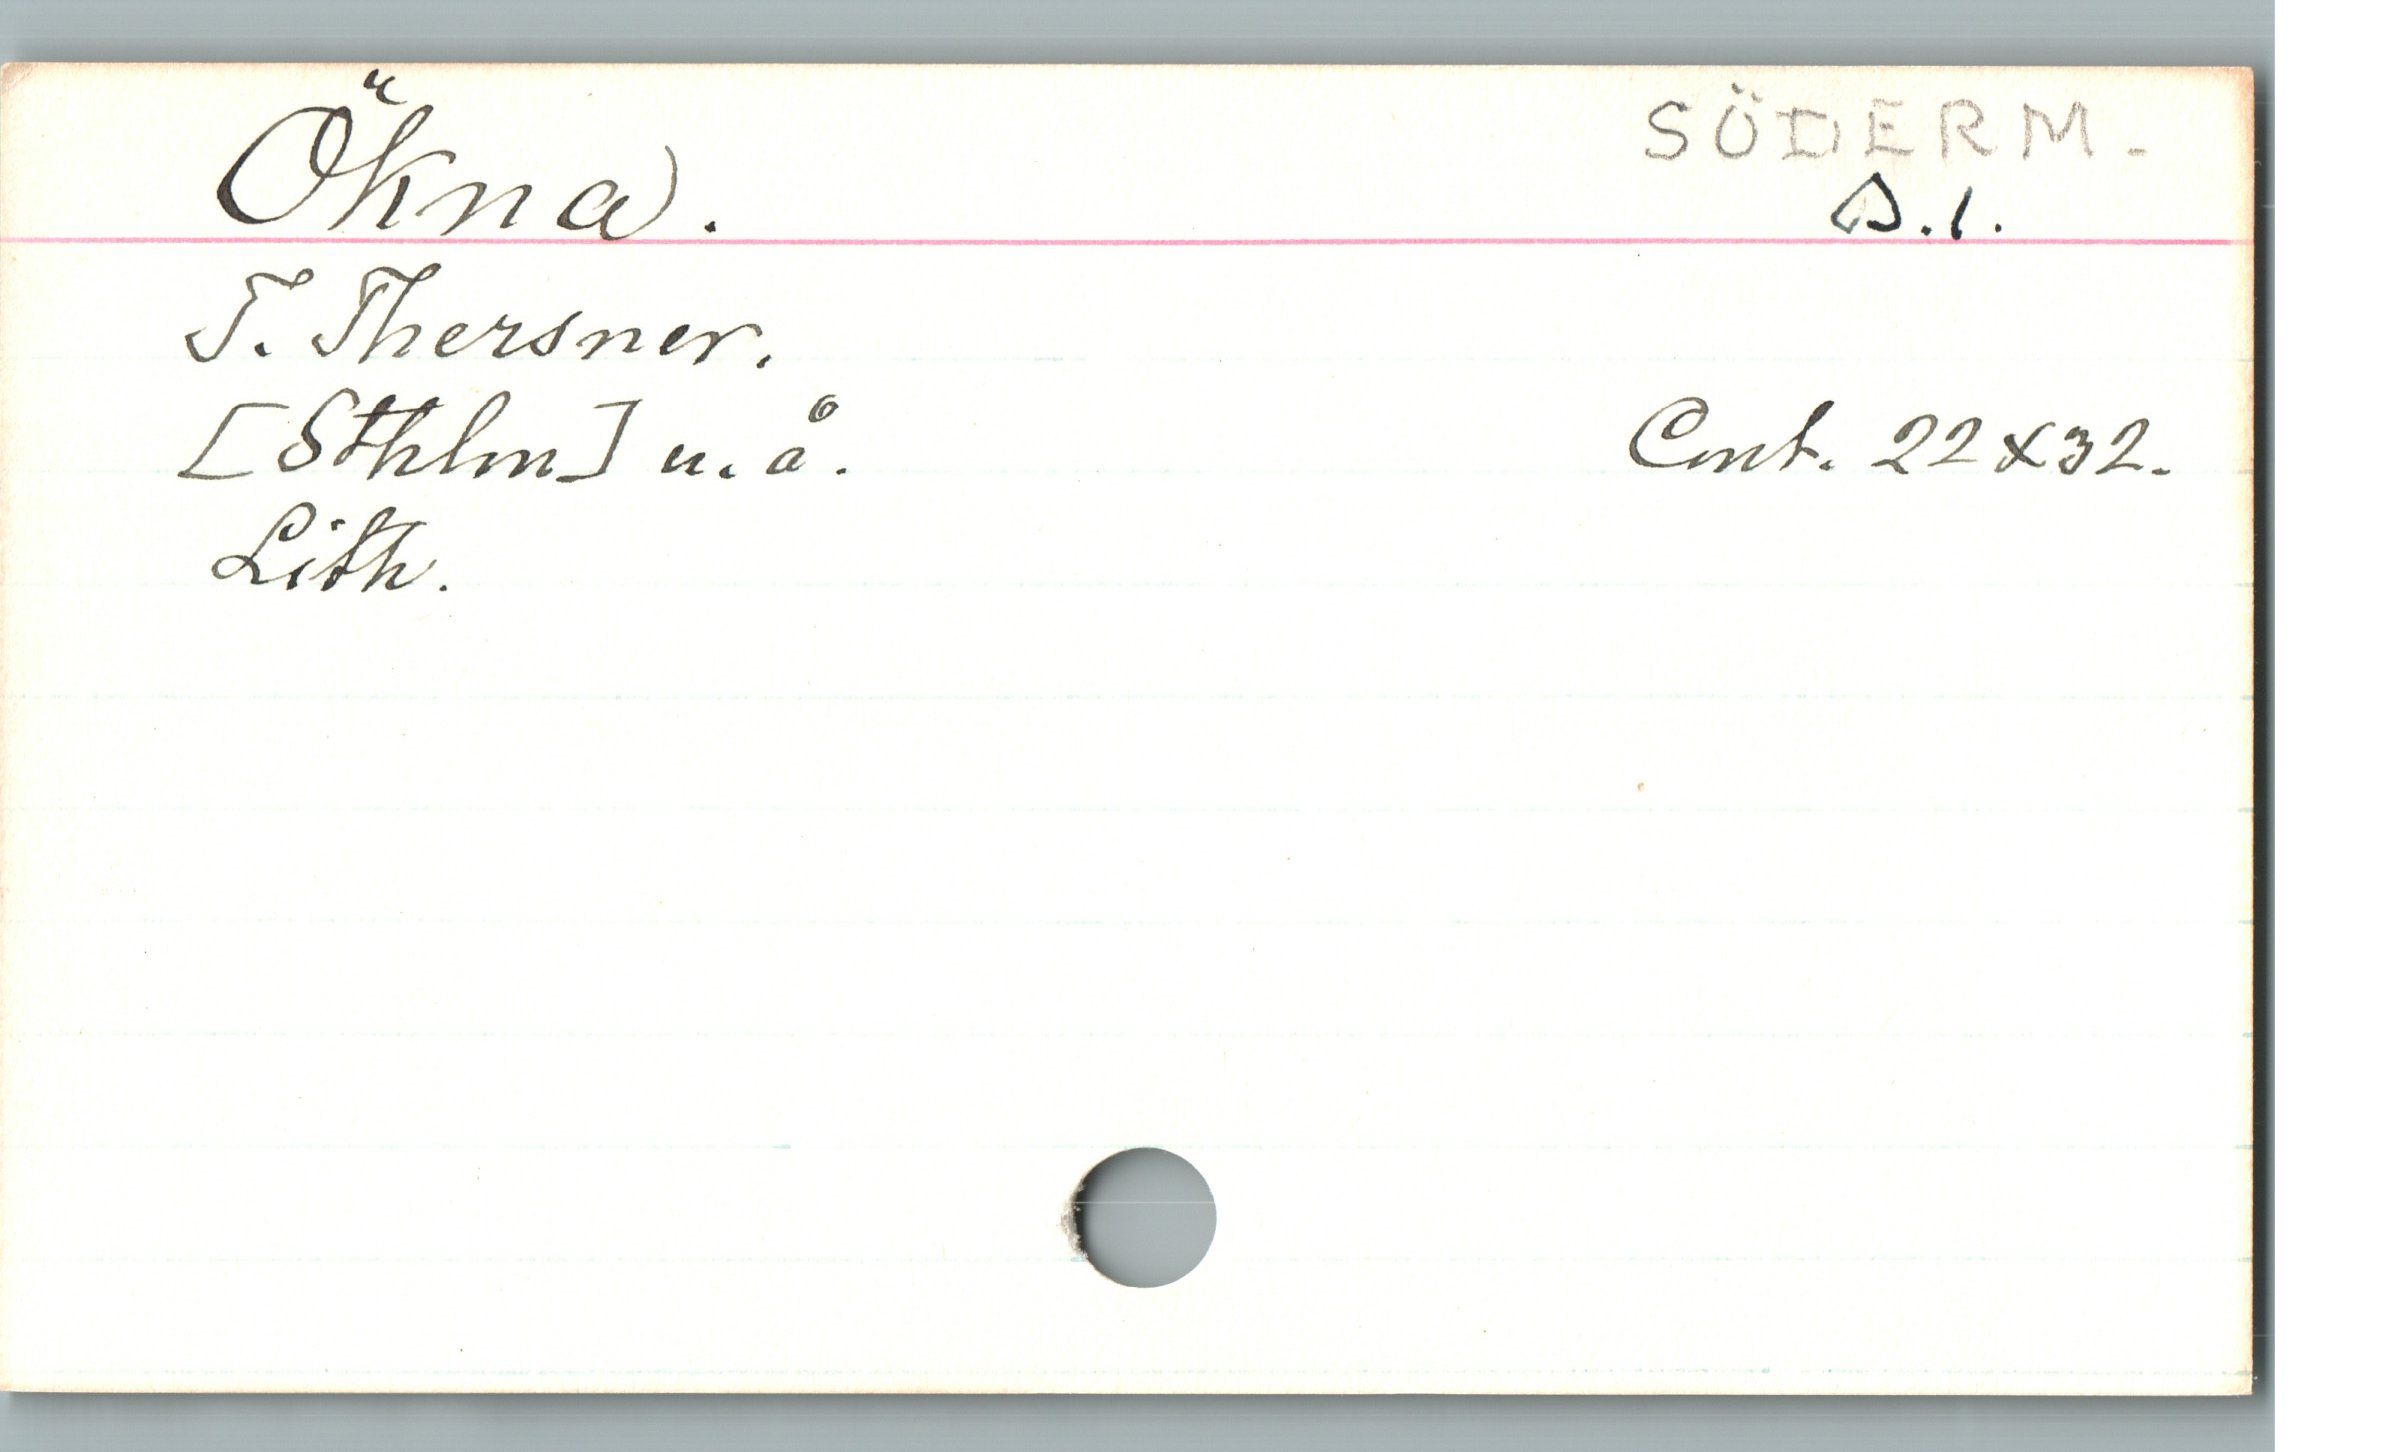 Ökna.
SÖDERM.
S.1.
T. Thersner.
[Sthlm] u.å.
Cont. 22x32.
Lith.